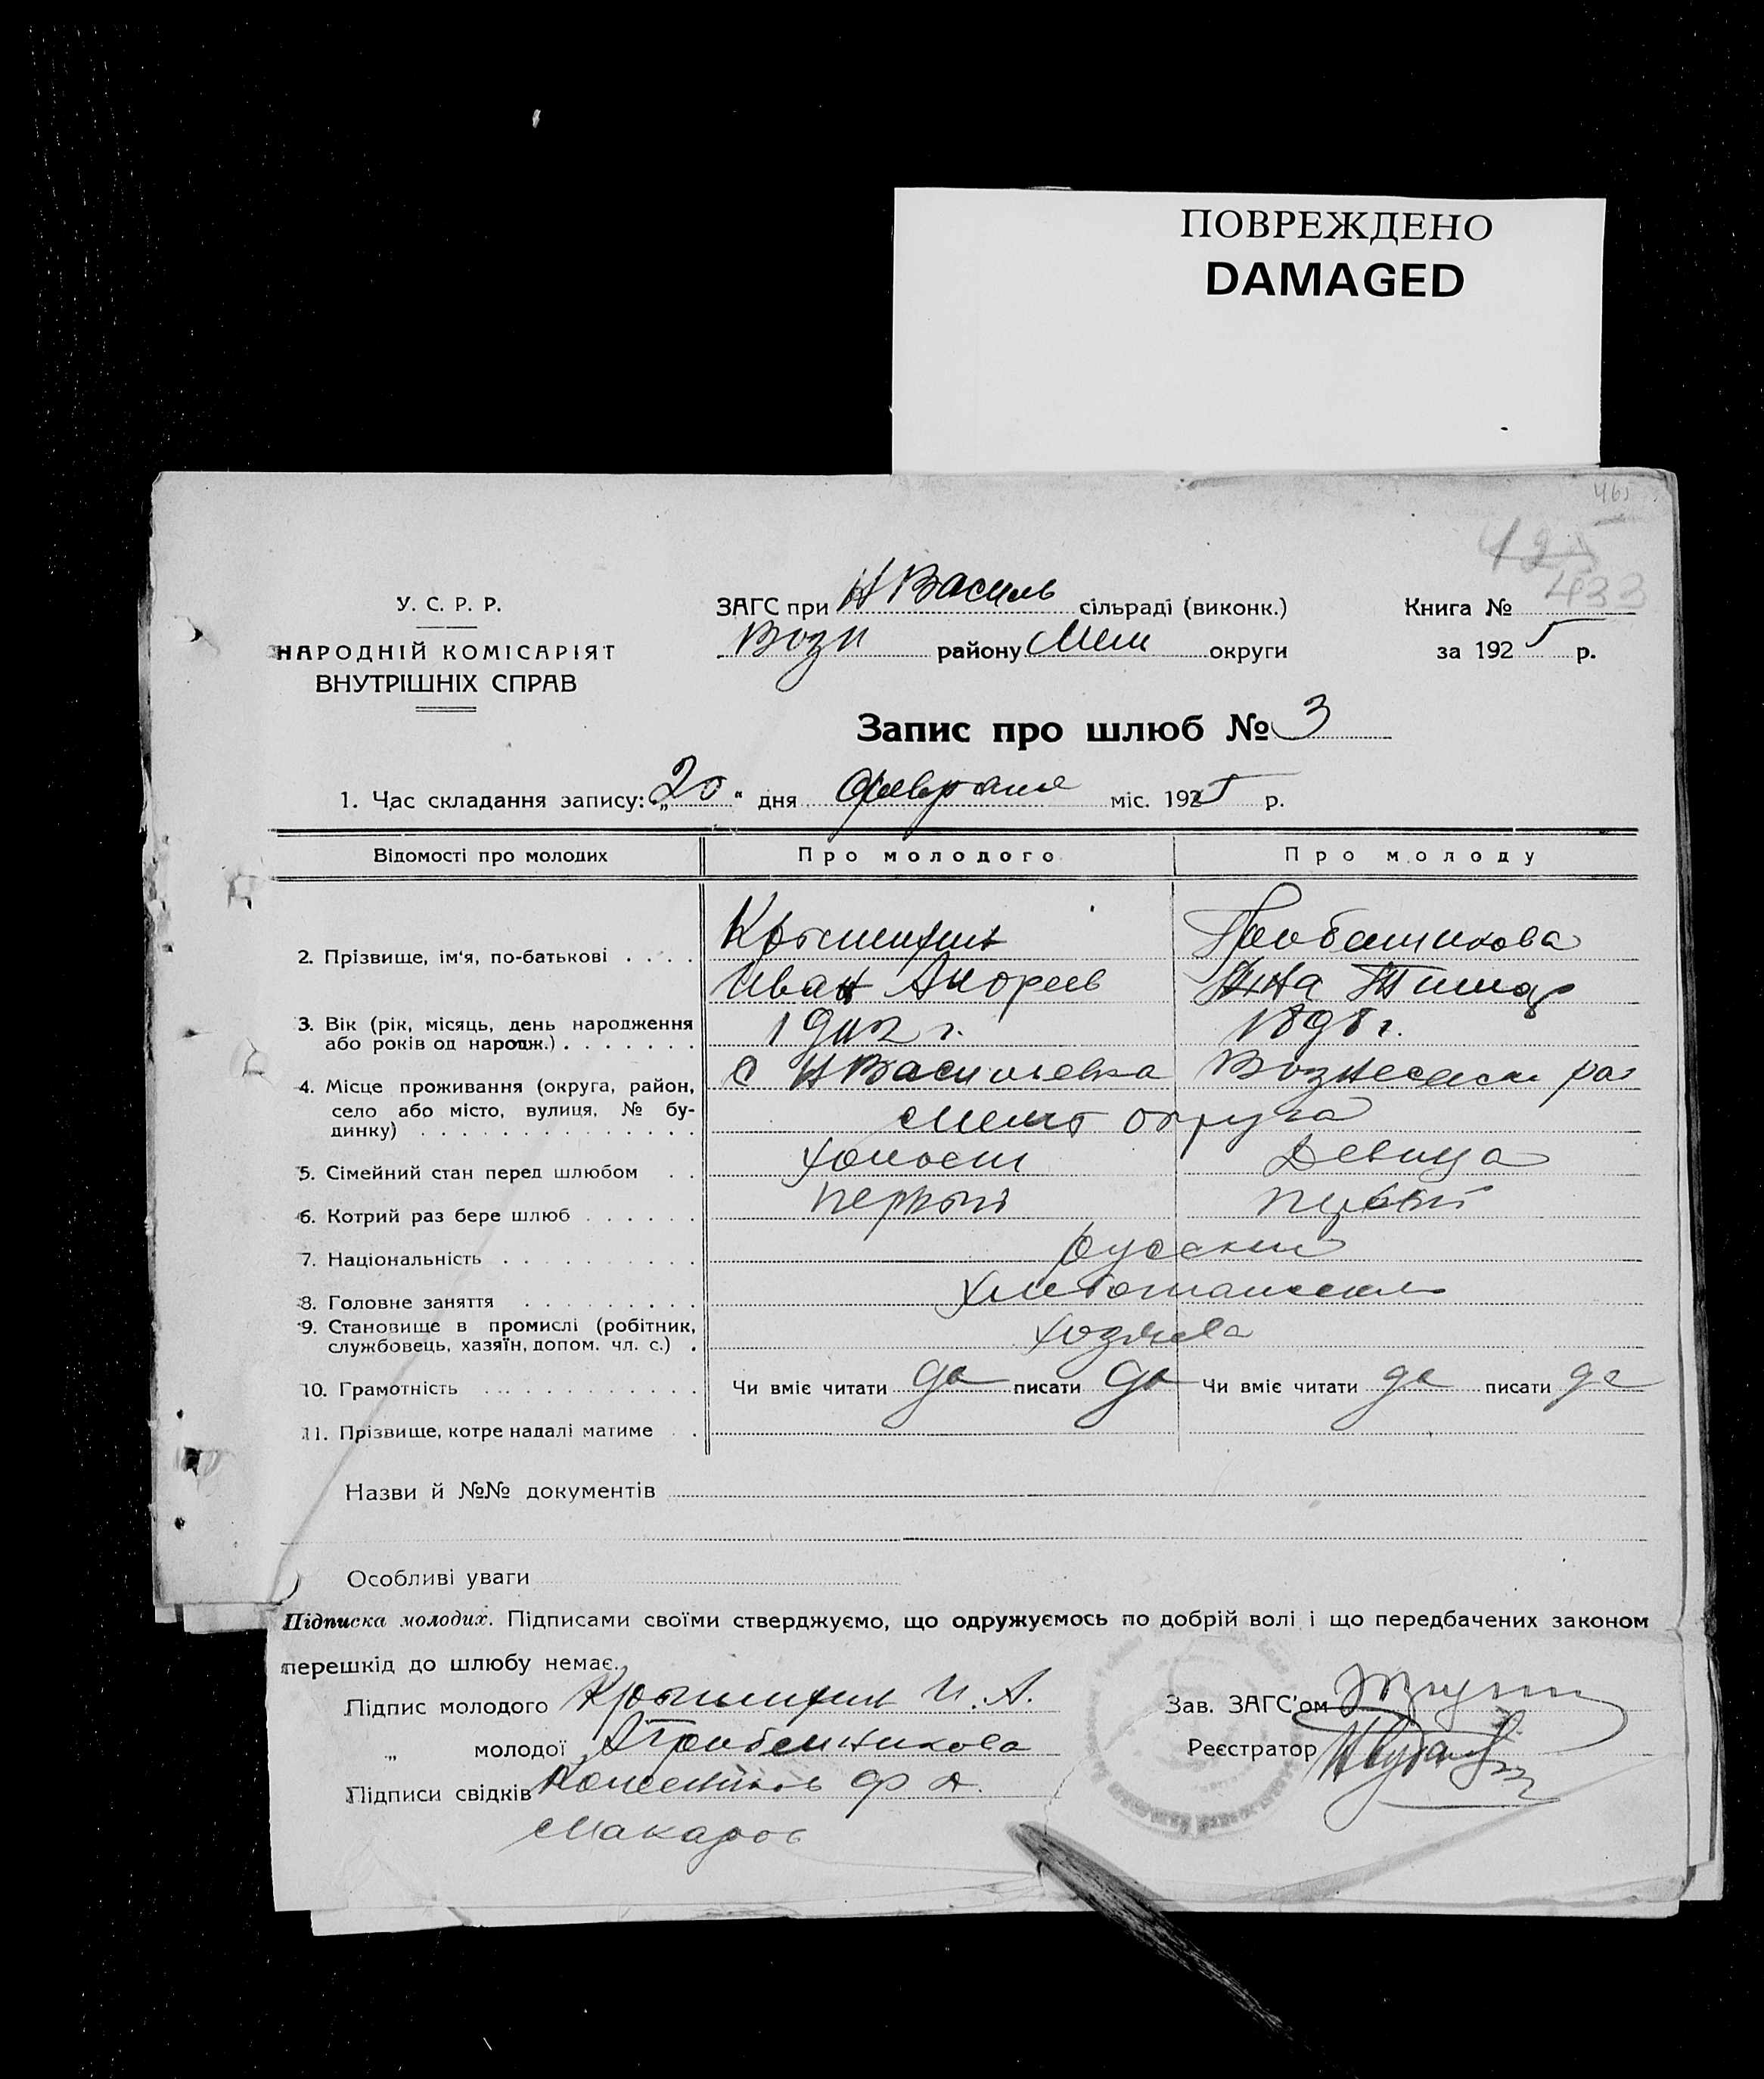 ПОВРЕЖДЕНО
DAMAGED
465
425
433
У. С. Р. Р.
НАРОДНІЙ КОМІСАРІЯТ
ВНУТРІШНІХ СПРАВ
ЗАГС при Н Василь сільраді (виконк.)
Возн району Мел округи
Книга №
за 1925 р.
Запис про шлюб № 3
1. Час складання запису: „20" дня февраля міс. 1925 р.
Відомості про молодих Про молодого Про молоду
2. Прізвище, ім'я, по-батькові . . . .
Иван Андреев
3. Вік (рік, місяць, день народження
або років од народж.) . . . . . . .
1902 г. 1898 г.
4. Місце проживання (округа, район,
село або місто, вулиця, № бу-
динку) . . . . . . . . . . . . . .
с Н Васильевка Вознесенск ра
Мелит округа
5. Сімейний стан перед шлюбом . . холост Девица
6. Котрий раз бере шлюб . . . . . . первый первый
7. Національність . . . . . . . . . . русский
8. Головне заняття . . . . . . . . . хлебопашест
9. Становище в промислі (робітник,
службовець, хазяїн, допом. чл. с.) . хозяева
10. Грамотність . . . . . . . . . . . . Чи вміє читати да писати да Чи вміє читати да писати да
11. Прізвище, котре надалі матиме . .
Назви й №№ документів
Особливі уваги
Підписка молодих. Підписами своїми стверджуємо, що одружуємось по добрій волі і що передбачених законом
перешкід до шлюбу немає.
Підпис молодого И. А.
„ молодої
Підписи свідків Ф А.
Макаров
Зав. ЗАГС'ом
Реєстратор